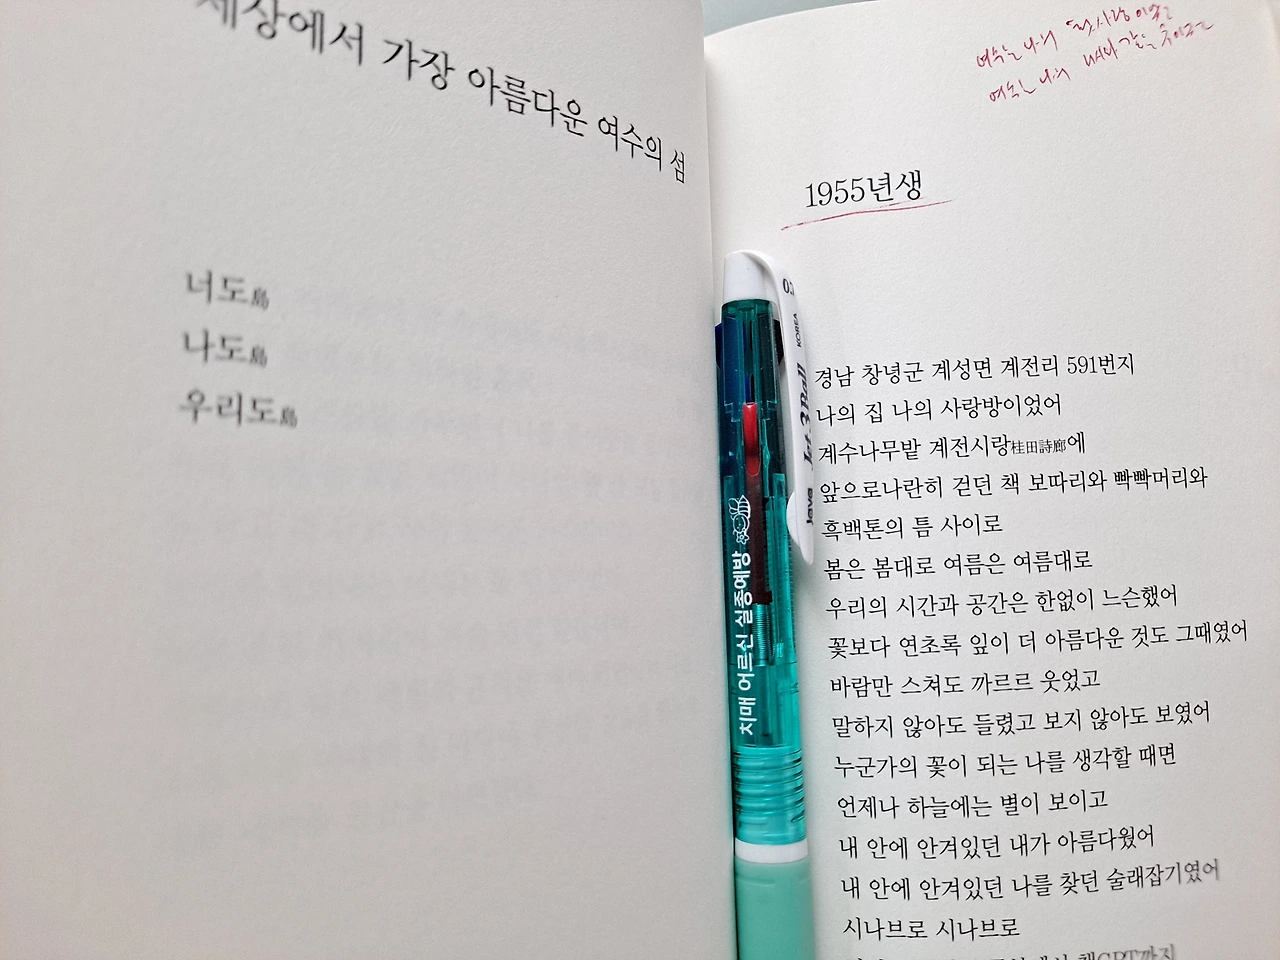 세상에서 가장 아름다운 여수의 섬
너도島
나도島
우리도島
여수는 나의 첫사랑이었고
여수는 나의
1955년생
경남 창녕군 계성면 계전리 591번지
나의 집 나의 사랑방이었어
계수나무밭 계전시랑桂田詩廊에
앞으로나란히 걷던 책 보따리와 빡빡머리와
흑백톤의 틈 사이로
봄은 봄대로 여름은 여름대로
우리의 시간과 공간은 한없이 느슨했어
꽃보다 연초록 잎이 더 아름다운 것도 그때였어
바람만 스쳐도 까르르 웃었고
말하지 않아도 들렸고 보지 않아도 보였어
누군가의 꽃이 되는 나를 생각할 때면
언제나 하늘에는 별이 보이고
내 안에 안겨있던 내가 아름다웠어
내 안에 안겨있던 나를 찾던 술래잡기였어
시나브로 시나브로
챗GPT까지
KOREA
Java Jet-3 Ball
치매 어르신 실종예방